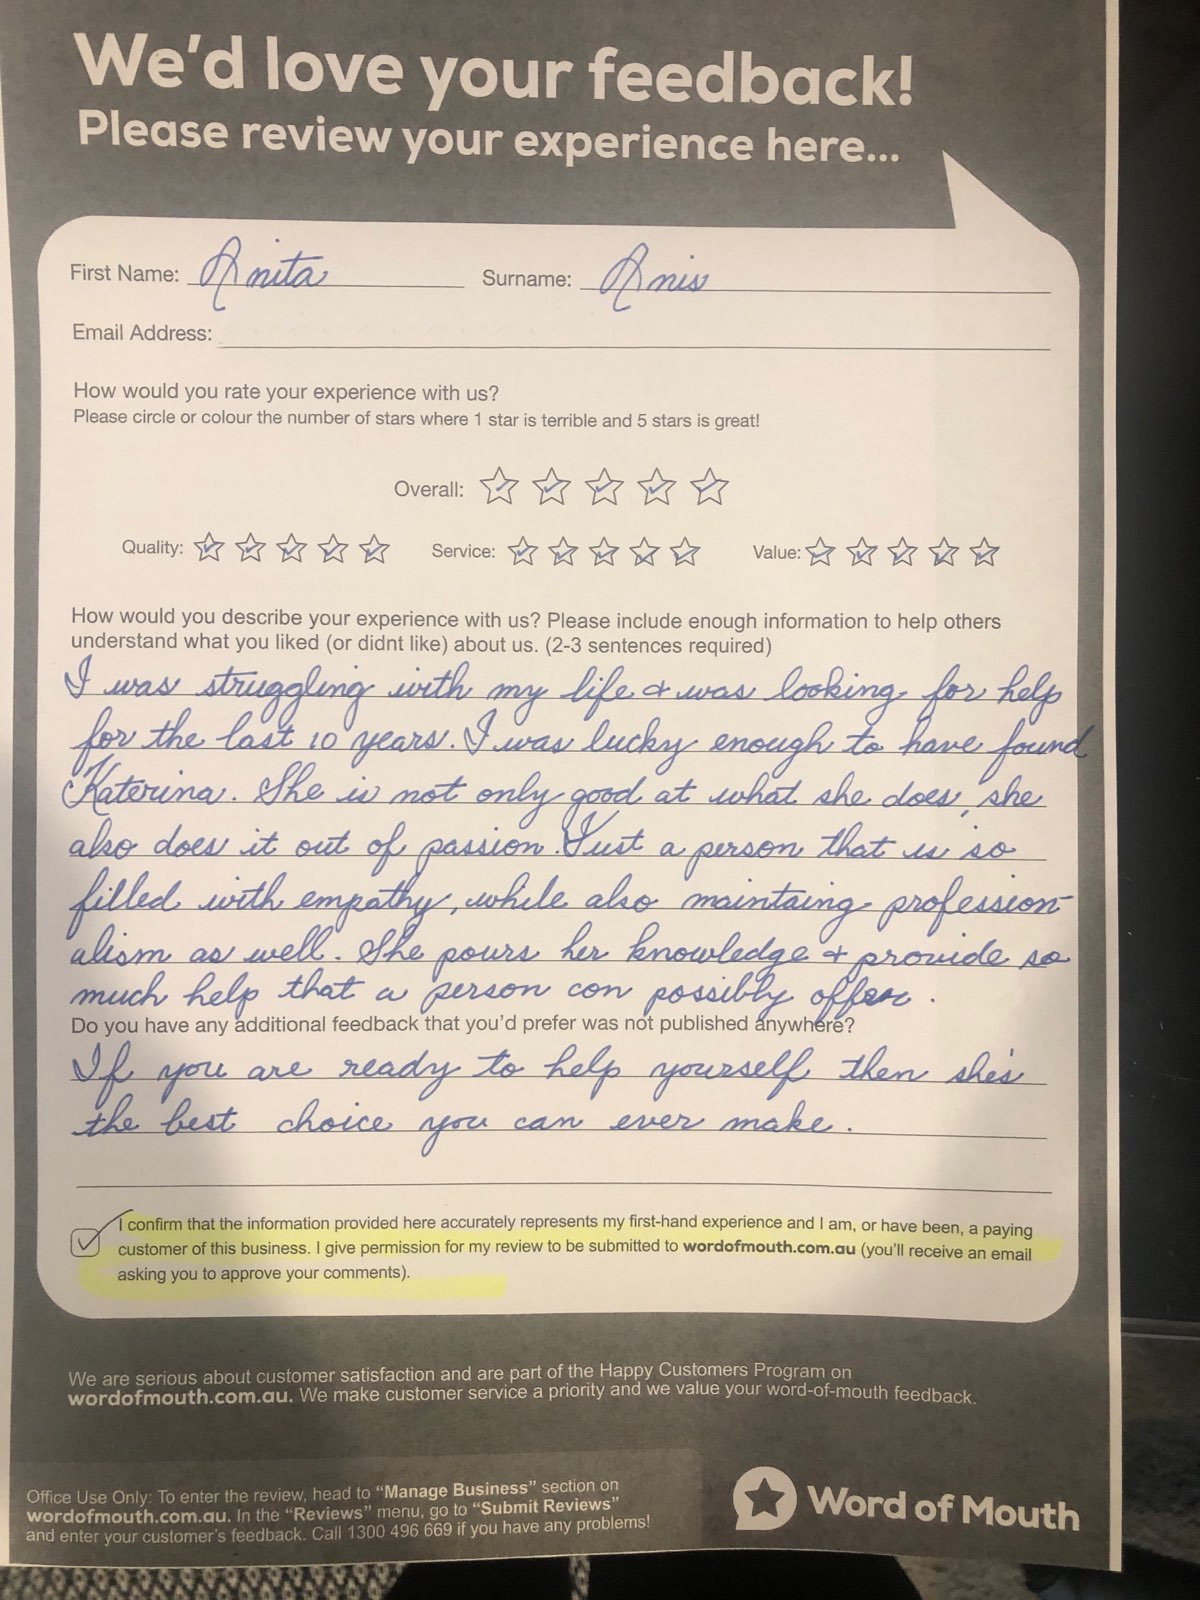 We'd love your feedback!
Please review your experience here...
First Name: Anita Surname: Anis
Email Address:
How would you rate your experience with us?
Please circle or colour the number of stars where 1 star is terrible and 5 stars is great!
Overall:
Quality: Service: Value:
How would you describe your experience with us? Please include enough information to help others
understand what you liked (or didnt like) about us. (2-3 sentences required)
I was struggling with my life & was looking for help
for the last 10 years. I was lucky enough to have found
Katerina. She is not only good at what she does, she
also does it out of passion. Just a person that is so
filled with empathy, while also maintaing profession-
alism as well. She pours her knowledge & provide so
much help that a person con possibly offer.
Do you have any additional feedback that you'd prefer was not published anywhere?
If you are ready to help yourself then she's
the best choice you can ever make.
I confirm that the information provided here accurately represents my first-hand experience and I am, or have been, a paying
customer of this business. I give permission for my review to be submitted to wordofmouth.com.au (you'll receive an email
asking you to approve your comments).
We are serious about customer satisfaction and are part of the Happy Customers Program on
wordofmouth.com.au. We make customer service a priority and we value your word-of-mouth feedback.
Office Use Only: To enter the review, head to "Manage Business" section on
wordofmouth.com.au. In the "Reviews" menu, go to "Submit Reviews"
and enter your customer's feedback. Call 1300 496 669 if you have any problems!
Word of Mouth